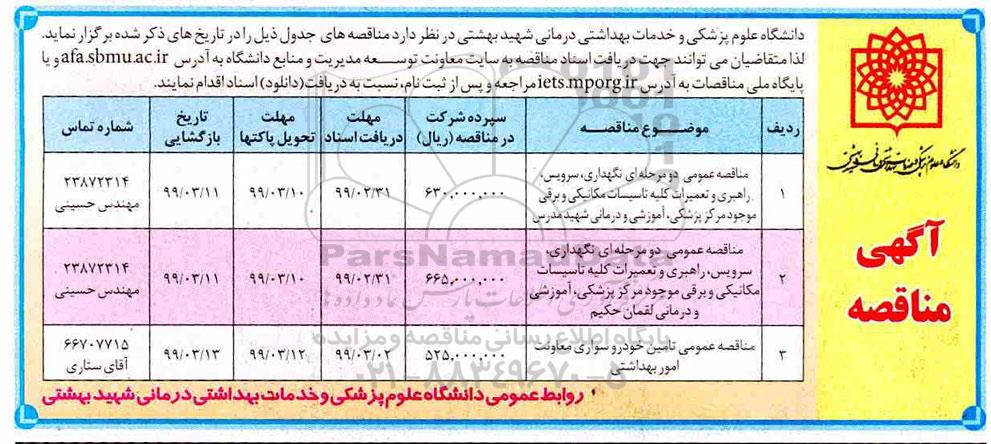 دانشگاه علوم پزشکی و خدمات بهداشتی درمانی شهید بهشتی در نظر دارد مناقصه های جدول ذیل را در تاریخ های ذکر شده برگزار نماید.
لذا متقاضیان می توانند جهت دریافت اسناد مناقصه به سایت معاونت توسعه مدیریت و منابع دانشگاه به آدرس afa.sbmu.ac.ir و یا
پایگاه ملی مناقصات به آدرس iets.mporg.ir مراجعه و پس از ثبت نام، نسبت به دریافت (دانلود) اسناد اقدام نمایند.
آگهی
مناقصه
ردیف موضوع مناقصه سپرده شرکت در مناقصه (ریال) مهلت دریافت اسناد مهلت تحویل پاکتها تاریخ بازگشایی شماره تماس
۱ مناقصه عمومی دو مرحله ای نگهداری، سرویس،
راهبری و تعمیرات کلیه تاسیسات مکانیکی و برقی
موجود مرکز پزشکی، آموزشی و درمانی شهید مدرس
۶۳۰,۰۰۰,۰۰۰ ۹۹/۰۲/۳۱ ۹۹/۰۳/۱۰ ۹۹/۰۳/۱۱ ۲۳۸۷۲۳۱۴
مهندس حسینی
۲ مناقصه عمومی دو مرحله ای نگهداری،
سرویس، راهبری و تعمیرات کلیه تاسیسات
مکانیکی و برقی موجود مرکز پزشکی، آموزشی
و درمانی لقمان حکیم
۶۶۵,۰۰۰,۰۰۰ ۹۹/۰۲/۳۱ ۹۹/۰۳/۱۰ ۹۹/۰۳/۱۱ ۲۳۸۷۲۳۱۴
مهندس حسینی
۳ مناقصه عمومی تامین خودرو سواری معاونت
امور بهداشتی
۵۲۵,۰۰۰,۰۰۰ ۹۹/۰۳/۰۲ ۹۹/۰۳/۱۲ ۹۹/۰۳/۱۳ ۶۶۷۰۷۷۱۵
آقای ستاری
روابط عمومی دانشگاه علوم پزشکی و خدمات بهداشتی درمانی شهید بهشتی
ParsNamadData
پایگاه اطلاع رسانی مناقصه و مزایده
۰۲۱-۸۸۳۴۹۶۷۰-۵